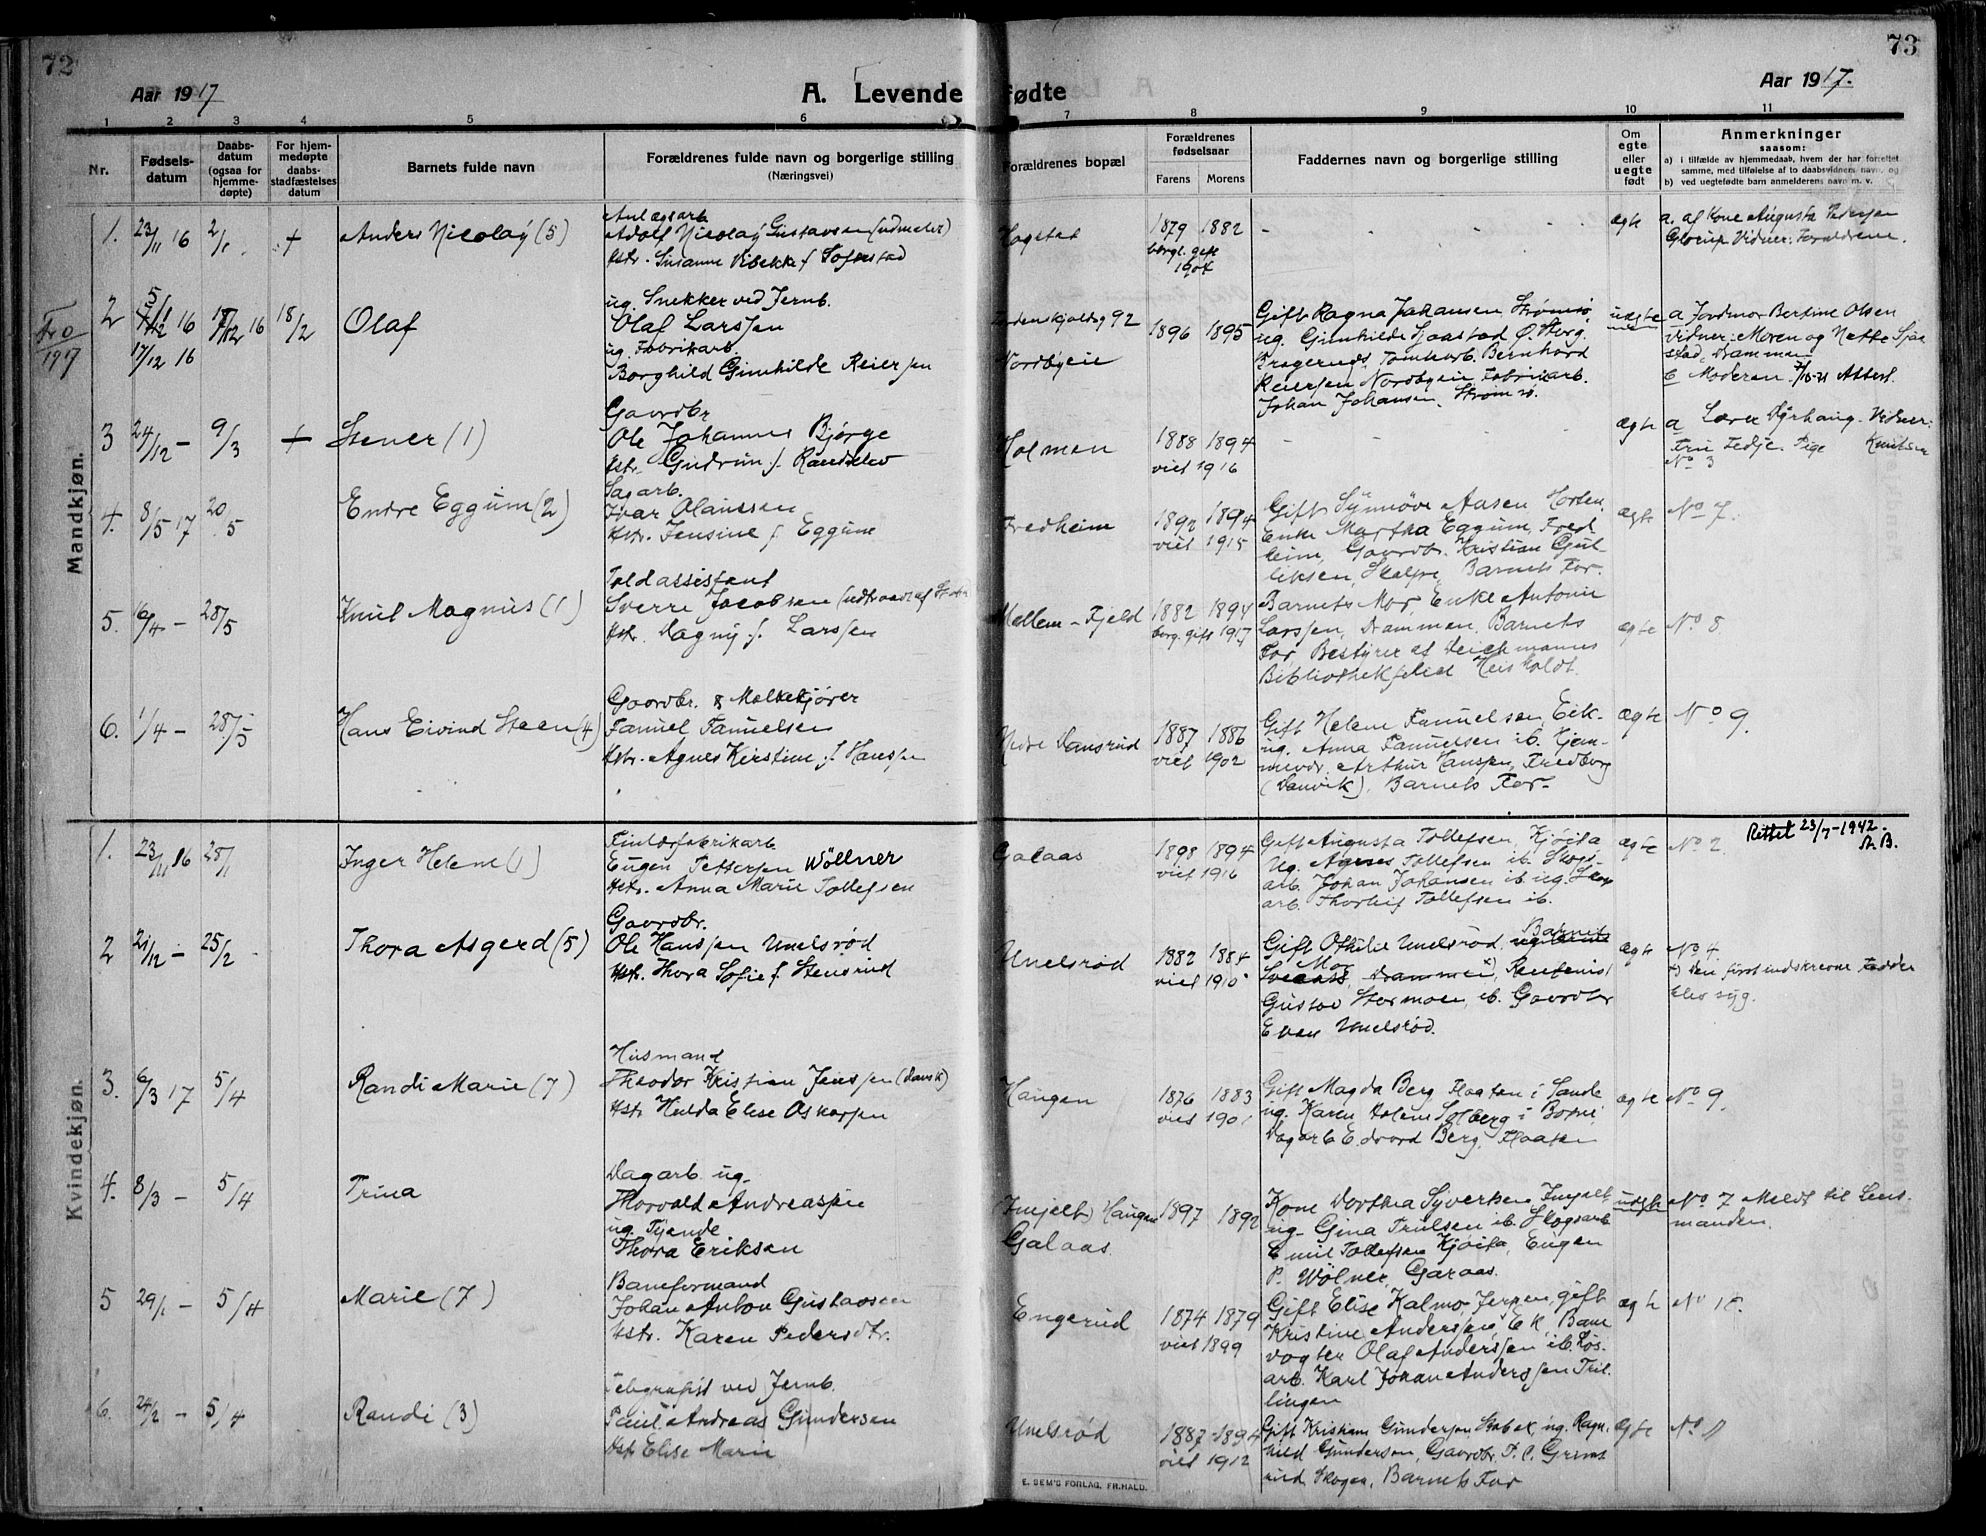 72
73
Aar 1917
A. Levende fødte
Aar 1917.
1 2 3 4 5 6 7 8 9 10 11
Nr.
Fødsels-
datum
Daabs-
datum
(ogsaa for
hjemme-
døpte)
For hjem-
medøpte
daabs-
stadfæstelses
datum
Barnets fulde navn
Forældrenes fulde navn og borgerlige stilling
(Næringsvei)
Forældrenes bopæl
Forældrenes
fødselsaar
Farens Morens
Faddernes navn og borgerlige stilling
Om
egte
eller
uegte
født
Anmerkninger
saasom:
a) i tilfælde av hjemmedaab, hvem der har forrettet
samme, med tilføielse af to daabsvidners navn, og
b) ved uegtefødte barn anmelderens navn m. v.
Mandkjøn.
1. 23/11 16 2/1 + Anders Nicolay (5)
Anlægsarb
Adolf Nicolay Gustavsen (udmeldt)
Hstr. Susanne Vibekke f. Sofiestad
Hogstad
1879 1882
borgl. gift
1904
ægte
a. af Kone Augusta Pedersen
Glorup Vidner: Forældrene.
2 5/1 16 18/2 Olaf
Fro
1917
17/12 16
ug. Snekker ved Jernb.
Olaf Larssen
ug. Fabrikarb.
Borghild Gunhilde Reiersen
Tordenskjoldsg 92
Nordbyeie
1896 1895
Gift Ragna Johansen Strømsø,
ug. Gunhilde Sjaastad Ø. Storg.
Bragernes, Tomtearb. Bernhard
Reiersen Nordbyeie, Fabrikarb.
Johan Johansen, Strømsø.
uægte
a Jordmor Bertine Olsen
Vidner: Moren og Nette Sjaa
stad, Drammen
b Moderen. Attest.
3 24/12 - 9/3 + Stener (1)
Gaardbr
Ole Johannes Bjørge
Hstr. Gudrun f. Randslev
Holmen
1888 1894
viet 1916
ægte
a Lærer Dyrhaug. Vidner:
Fru Tedje. Pige Knutsen
No 3
4. 8/5 17 20/5 Endre Eggum (2)
Sagarb.
Ivar Olaussen
Hstr. Jensine f. Eggum
Fredheim
1892 1894
viet 1915
Gift Synnøve Aasen Horten,
Enke Martha Eggum, Fred
heim, Gaardbr. Kristian Gul-
liksen, Skalpe, Barnets Far.
ægte
No 7.
5. 16/4 - 28/5 Knut Magnus (1)
Toldassistent
Sverre Jacobsen (udtraadt af Statsk)
Hstr. Dagny f. Larssen
Mellem-Fjeld
1882 1894
borg. gift 1917
Barnets Mor, Enke Antonie
Larssen, Drammen, Barnets
Far Bestyrer af Deichmanns
Bibliothekfilial
ægte
No 8
6. 1/4 - 28/5 Hans Eivind Steen (4)
Gaardbr. & Melkekjører
Fanuel Fanuelsen
Hstr. Agnes Kirstine f. Hanssen
Nedre Dansrud
1887 1886
viet 1902
Gift Helene Fanuelsen, Eik-
ug. Anna Fanuelsen ib. Hjem-
meværr. Arthur Hanssen, Fredborg
(Danvik), Barnets Far-
ægte
No 9.
Kvindekjøn.
1. 23/11 16 28/1 Inger Helene (1)
Finlærfabrikarb
Eugen Pettersen Wöllner
Hstr. Anna Marie Tollefsen
Galaas
1898 1894
viet 1916
Gift Augusta Tollefsen, Kjøsta
Ug. Agnes Tollefsen ib. Skogs-
arb. Johan Johansen ib. ug. Skog
arb. Thorleif Tollefsen ib.
ægte
No 2.
Rettet 23/7-1942.
2 21/12 - 25/2 Thora Asgerd (5)
Gaardbr.
Ole Hanssen Unelsrød
Hstr. Thora Sofie f. Stensrud
Unelsrød
1882 1884
viet 1910
Gift Othilie Unelsrød, Barnets
Mor, Drammen x), Rentenist
Gustav Stormoen, ib. Gaardbr
Even Unelsrød.
ægte
No 4.
x) Den først indskrevne Fadder
blev syg.
3. 6/3 17 5/4 Randi Marie (7)
Husmand
Theodor Kristian Jenssen (Dansk)
Hstr. Hulda Elise Oskarsen
Haugen
1876 1883
viet 1901
Gift Magda Berg Haaten i Sande
ug. Karen Helene Solberg i Botne
Dagarb Edvard Berg, Haaten
ægte
No 9.
4. 8/3 - 5/4 Trina
Dagarb ug.
Thorvald Andreassen
ug. Tjende
Thora Eriksen
Imjelt, Haugen
Galaas.
1897 1892
Kone Dorthea Syversen Imjelt
ug. Gina Trulsen ib. Skogsarb
Emil Tollefsen Kjøsta, Eugen
P. Wölner, Garaas.
uægte
No 7 Meldt til Lens-
manden.
5 29/1 - 5/4 Marie (7)
Baneformand
Johan Anton Gustavsen
Hstr. Karen Pedersdtr.
Engerud
1874 1879
viet 1899
Gift Elise Kalmo, Jerpen, gift
Kristine Anderssen, Ek, Bane
vogter Olaf Anderssen ib. Løs-
arb. Karl Johan Anderssen Tril-
lingen
ægte
No 10.
6. 24/2 - 5/4 Randi (3)
Telegrafist ved Jernb.
Paul Andreas Gundersen
Hstr Elise Marie
Unelsrød
1887 - 1894
viet 1912
Gift Kristiane Gundersen, Stabæk, ug. Ragn-
hild Gundersen, Gaardbr. P. C. Grims
rud, Skogen, Barnets Far
ægte
No 11
E. SEM'S FORLAG, FR.HALD.